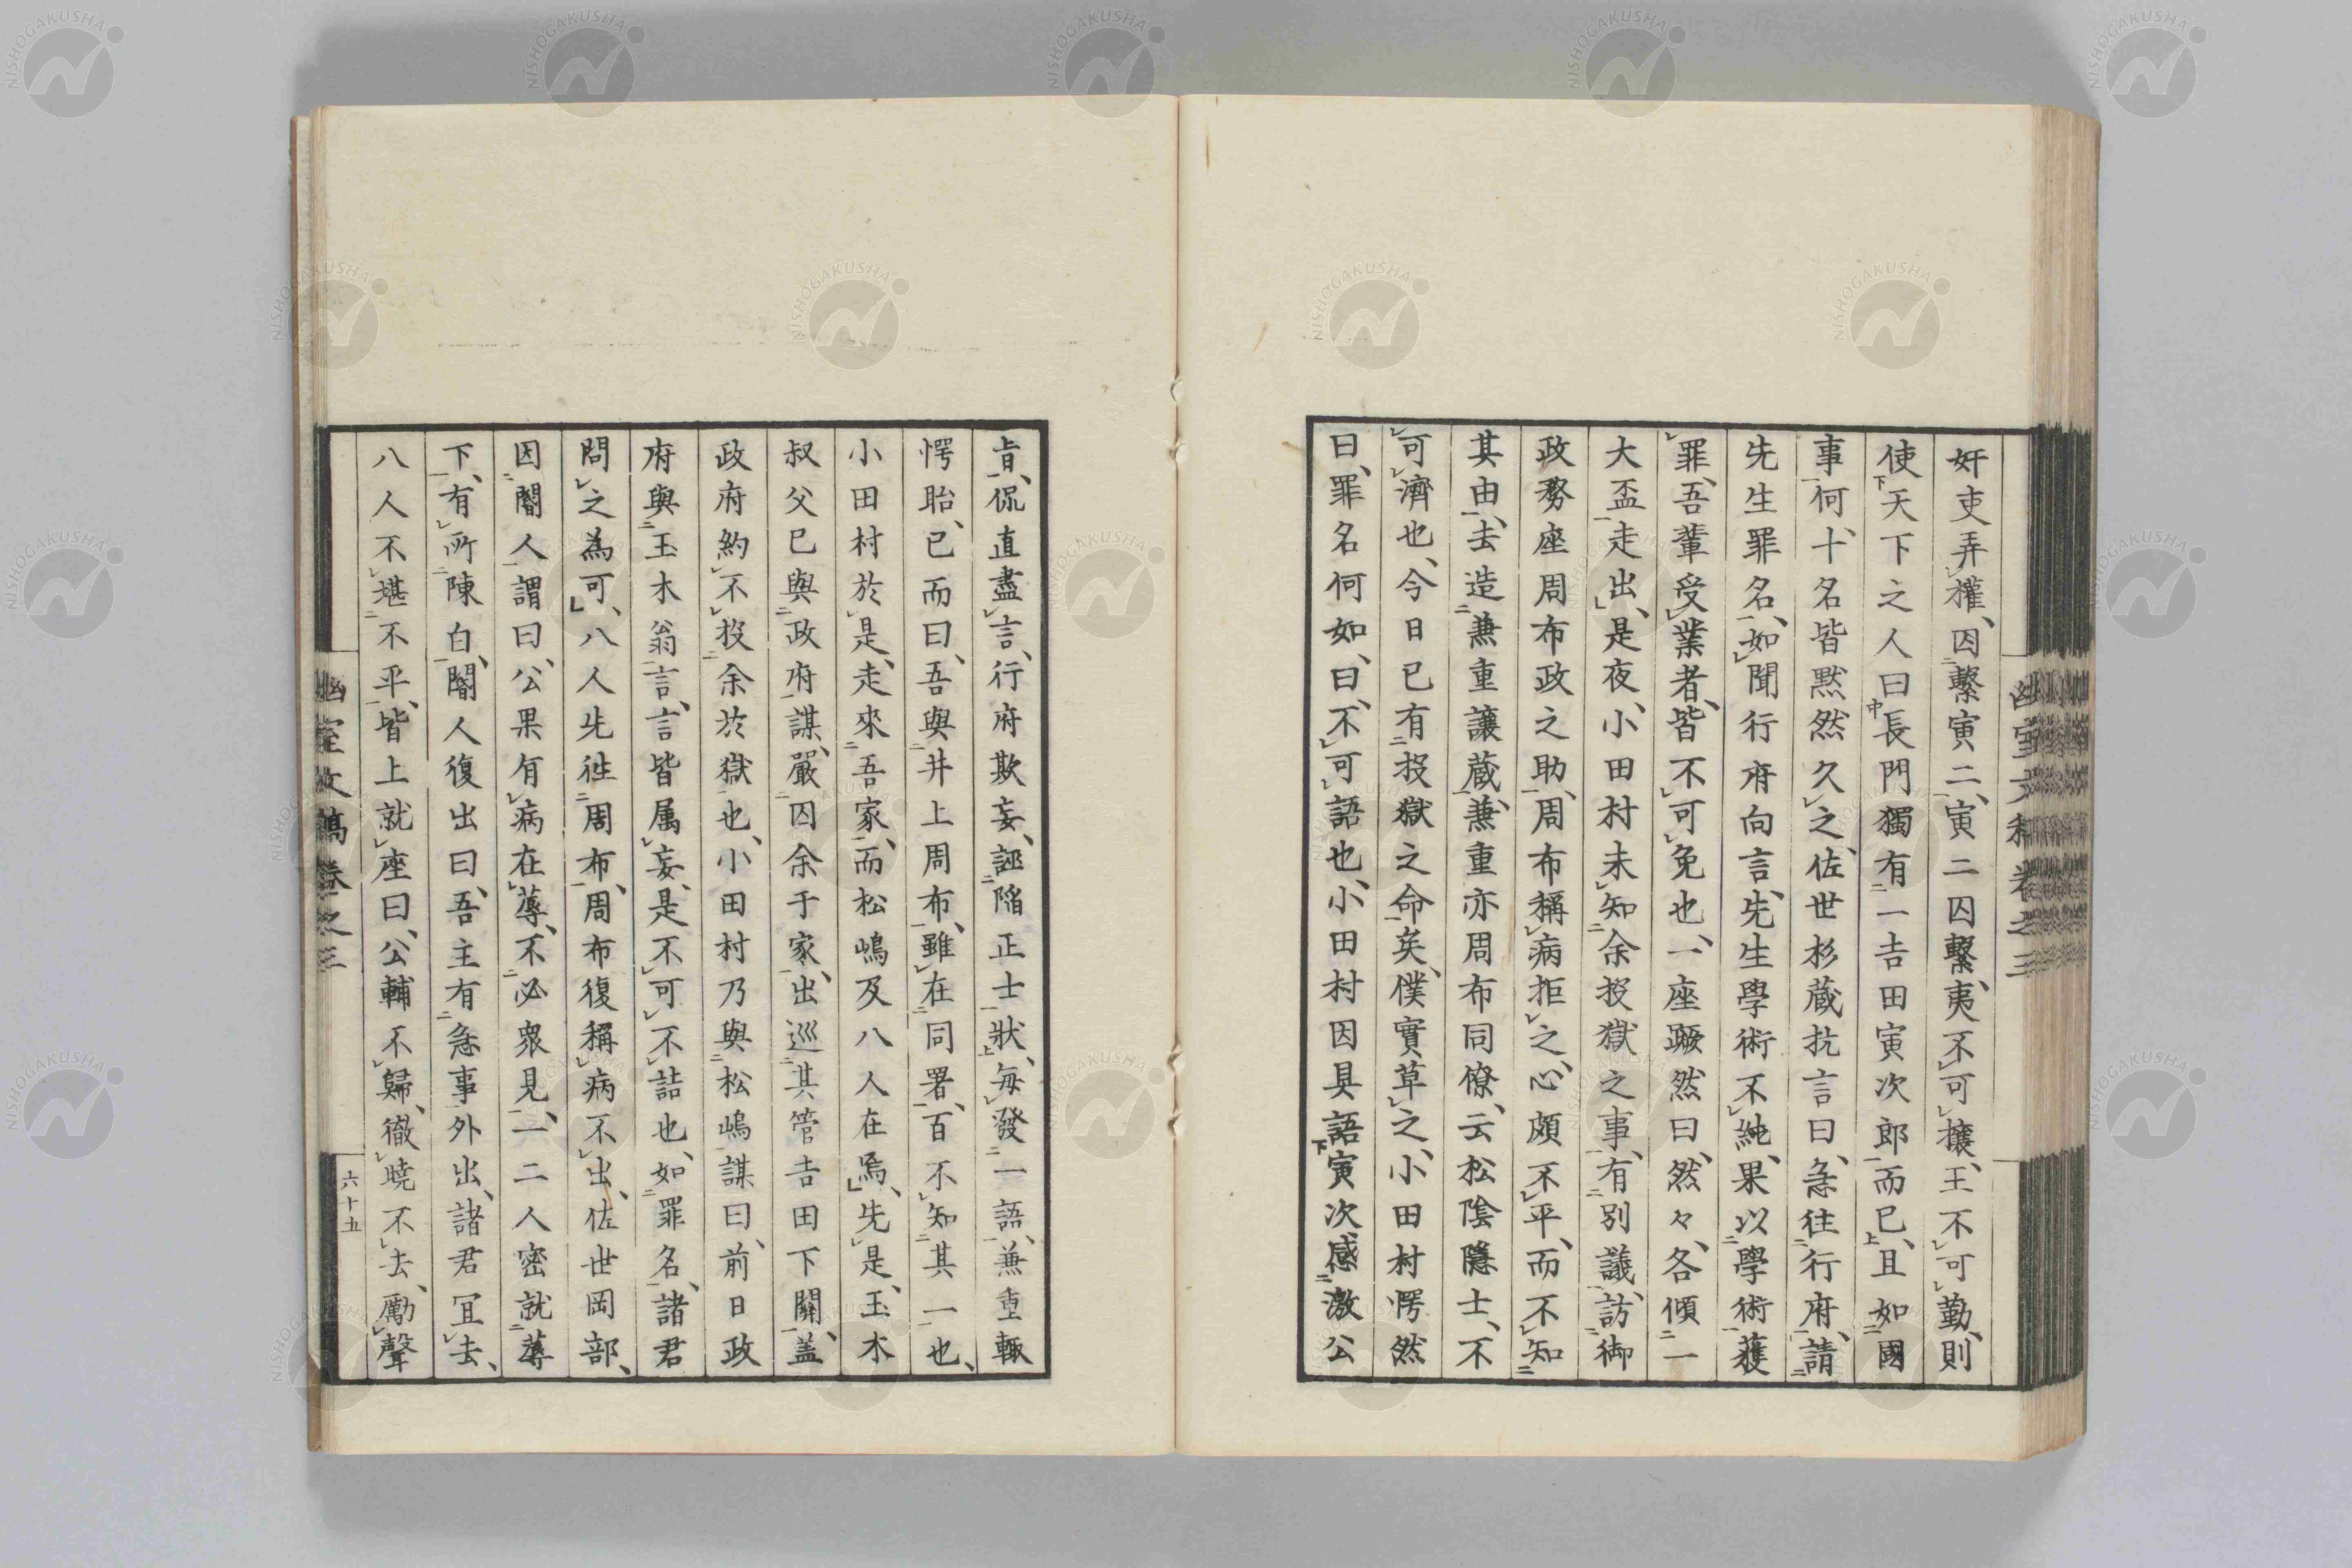 奸吏弄權、因繫寅二、寅二囚繫、夷不可攘、王不可勤、則
使天下之人曰長門獨有一吉田寅次郎而已、且如國
事何、十名皆黙然久之、佐世杉蔵抗言曰、急往行府、請
先生罪名、如聞行府向言、先生學術不純、果以學術獲
罪、吾輩受業者、皆不可免也、一座蹶然曰、然々、各傾一
大盃走出、是夜、小田村未知余投獄之事、有別議、訪御
政務座周布政之助、周布稱病拒之、心頗不平、而不知
其由、去造兼重讓蔵、兼重亦周布同僚、云松陰隱士、不
可濟也、今日已有投獄之命矣、僕實草之、小田村愕然
曰、罪名何如、曰、不可語也、小田村因具語寅次感激公
旨、侃直盡言、行府欺妄、誣陷正士狀、毎發一語、兼重輙
愕眙、已而曰、吾與井上周布、雖在同署、百不知其一也、
小田村於是、走來吾家、而松嶋及八人在焉、先是、玉木
叔父已與政府謀、嚴囚余于家、出巡其管吉田下關、盖
政府約不投余於獄也、小田村乃與松嶋謀曰、前日政
府與玉木翁言、言皆属妄、是不可不詰也、如罪名、諸君
問之為可、八人先徃周布、周布復稱病不出、佐世岡部、
因閽人謂曰、公果有病在蓐、不必衆見、一二人密就蓐
下、有所陳白、閽人復出曰、吾主有急事外出、諸君宜去、
八人不堪不平、皆上就座曰、公輔不歸、徹曉不去、勵聲
幽室文稿卷之三
六十五